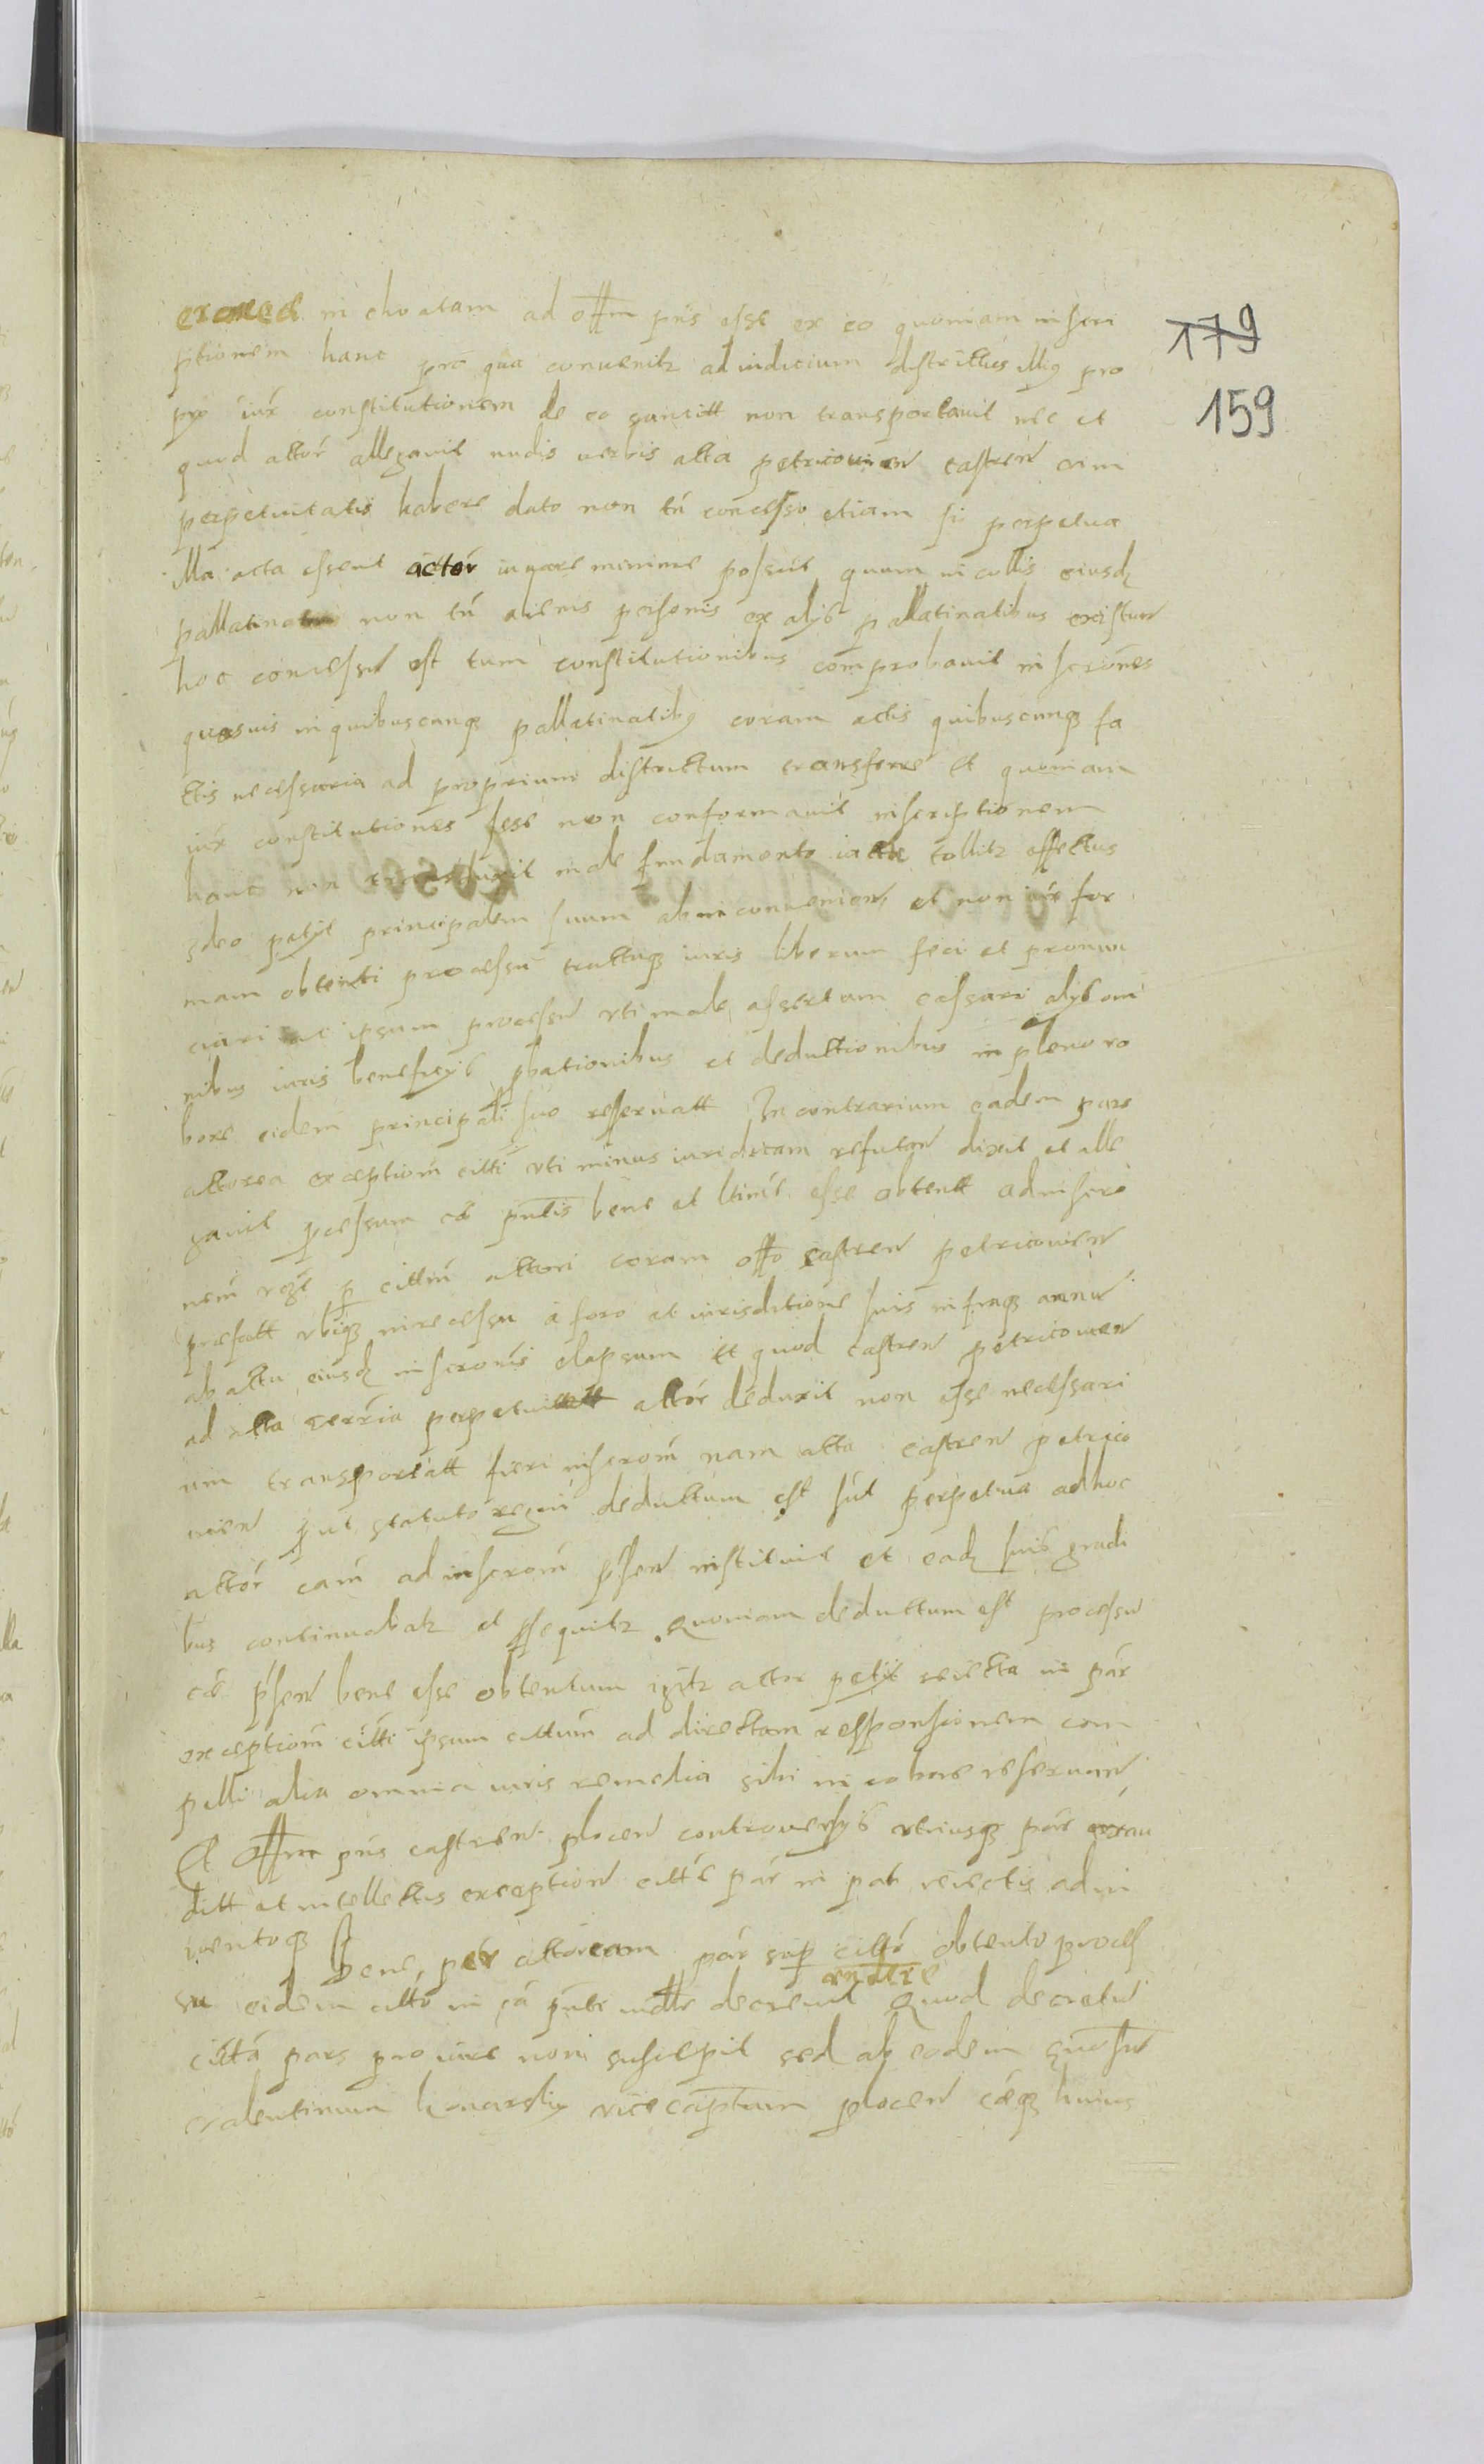 in choatam ad offm pns esse ex eo quoniam inscri
179
ptionem hanc pro qua convenitr ad iudicium districtus illius pro
159
prÿ iux constitutionem de eo sancitt non transportavit nec et
quod actor allegavit nudis verbis acta petricovien castren vim
perpetuitatis habere dato non tn concesso etiam si perpetua
illa acta essent actor iuvare minime possut quum incolis eiusdq
pallatinatus non tn alienis personis ex alÿs pallatinatibus existen
hoc concessu est tum constitutionibus comprobavit inscrones
quasvis in quibuscunq pallatinatibus coram actis quibuscunq fa
ctis necessaria ad proprium districtum transferre Et quoniam
iux constitutiones sese non conformavit inscriptionem
hanc non transduxit inde fundamento iacta tollitr effectus
Ideo petÿt principalem suum ab inconvenien et non iux for
mam obtenti processu tractuq iuris liberum feci et pronun
ciari ac ipsum processu uti male assertum cassari alÿs om
nibus iuris beneficÿs pbationibus et deductionibus in plenoro
bore eidem principali suo reservatt In contrarium eadem pars
actorea exceptiom citti uti minus iuridicam refutan dixit et alle
gavit pcessum cae pntis bene et ltime esse obtentt ad inscro
nem rgte p cittm actori coram offo castren petricovien
prefatt ubiq in recessu a foro et iurisditione suis infraq annu
ab actu eiusdq inscronis elapsum Et quod castren petricovien
ad acta terria perpetui actor deduxit non esse necessari
um transportatt fieri inscrom nam acta castren petrico
vien put statuto regni deductum est sut perpetua ad hoc
actor cam ad inscrom psen instituit et eadq suis gradi
bus continuabat et psequitr Quoniam deductum est processu
cae psen bene esse obtentum igitr actor petÿt reiecta in par
exceptiom citti ipsum cittum ad directam responsionem com
pelli alia omnia iuris remedia sibi in robore reservan
Et offm pns castren plocen controversÿs utriusq par exau
ditt et intellectis exception citte par in pat reiectis adin
ventoq
bene per actoream par sup citto obtento proces
su eidem citto in ca pnti
rndere
decrevit Quod decretu
citta pars pro iure non suscepit sed ab eodem
valentinum konarskÿ vicecaptum plocen caeq huius